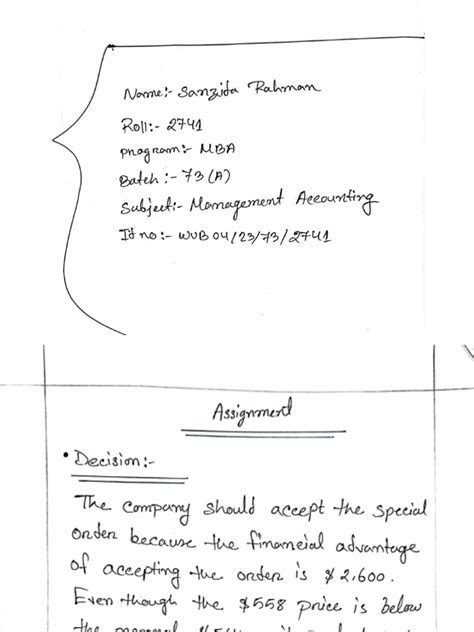 Name:- Sanzida Rahman
Roll:- 2741
program:- MBA
Batch :- 73 (A)
Subject:- Management Accounting
Id no :- WUB 04/23/73/2741
Assignment
• Decision:-
The company should accept the special
order because the financial advantage
of accepting the order is $ 2,600.
Even though the $558 price is below
the